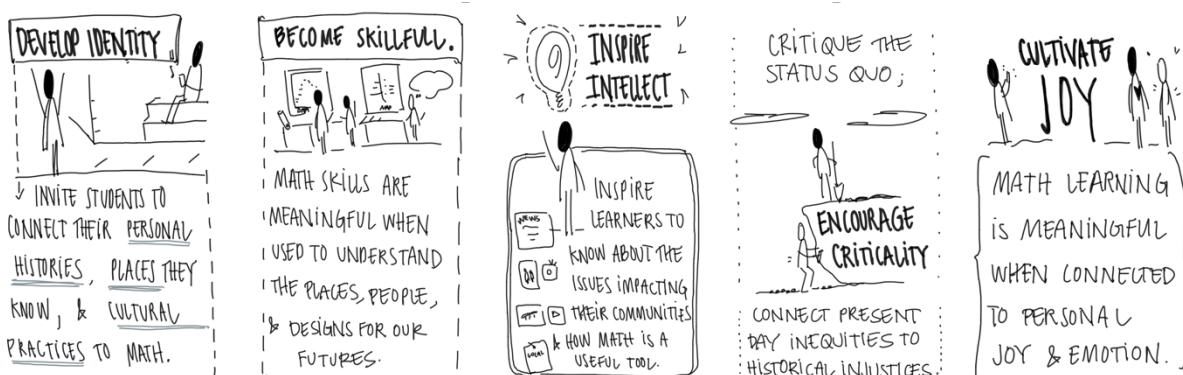 DEVELOP IDENTITY
INVITE STUDENTS TO
CONNECT THEIR PERSONAL
HISTORIES, PLACES THEY
KNOW, & CULTURAL
PRACTICES TO MATH.
BECOME SKILLFULL.
MATH SKILLS ARE
MEANINGFUL WHEN
USED TO UNDERSTAND
THE PLACES, PEOPLE,
& DESIGNS FOR OUR
FUTURES.
INSPIRE
INTELLECT
INSPIRE
LEARNERS TO
KNOW ABOUT THE
ISSUES IMPACTING
THEIR COMMUNITIES
& HOW MATH IS A
USEFUL TOOL.
NEWS
LOCAL
CRITIQUE THE
STATUS QUO;
ENCOURAGE
CRITICALITY
CONNECT PRESENT
DAY INEQUITIES TO
HISTORICAL INJUSTICES
CULTIVATE
JOY
MATH LEARNING
IS MEANINGFUL
WHEN CONNECTED
TO PERSONAL
JOY & EMOTION.